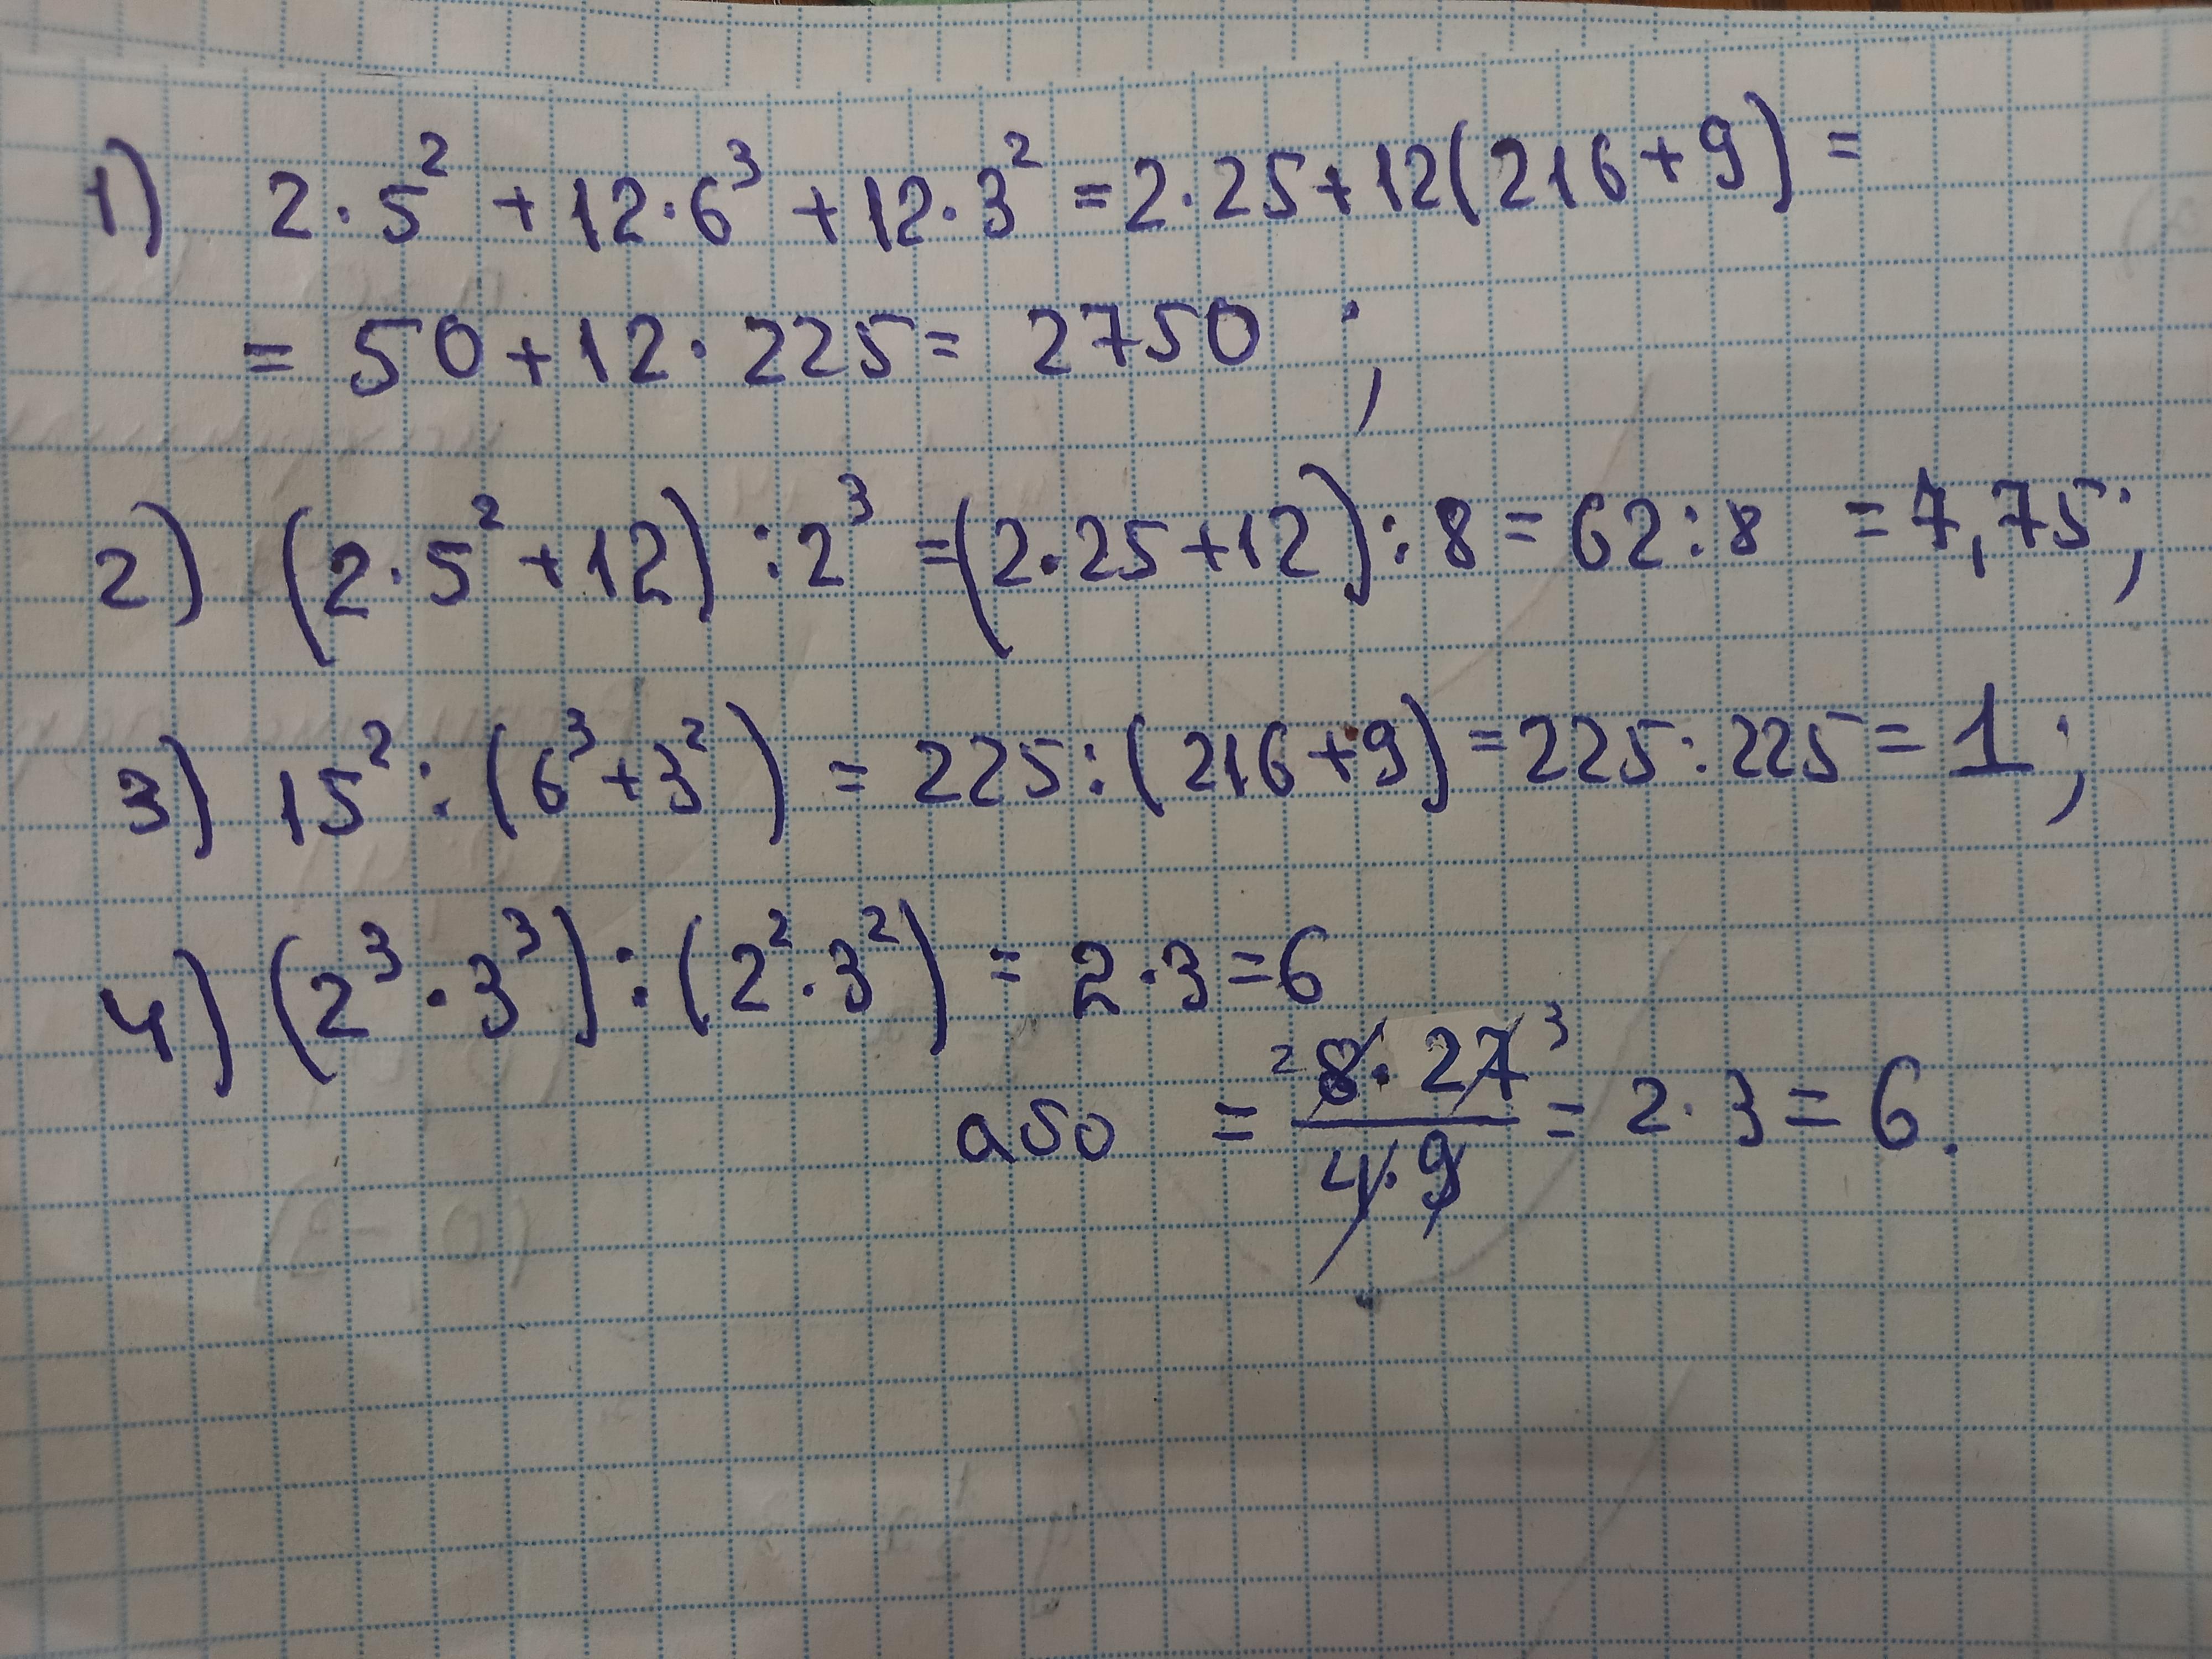 1) 2·5² + 12·6³ + 12·3² = 2·25 + 12(216+9) =
= 50 + 12·225 = 2750 ;
2) (2·5² + 12) : 2³ = (2·25 + 12) : 8 = 62 : 8 = 7,75 ;
3) 15² : (6³ + 3²) = 225 : (216 + 9) = 225 : 225 = 1 ;
4) (2³ · 3³) : (2² · 3²) = 2·3 = 6
² 8 · 27 ³
або = ——— = 2·3 = 6.
4 · 9